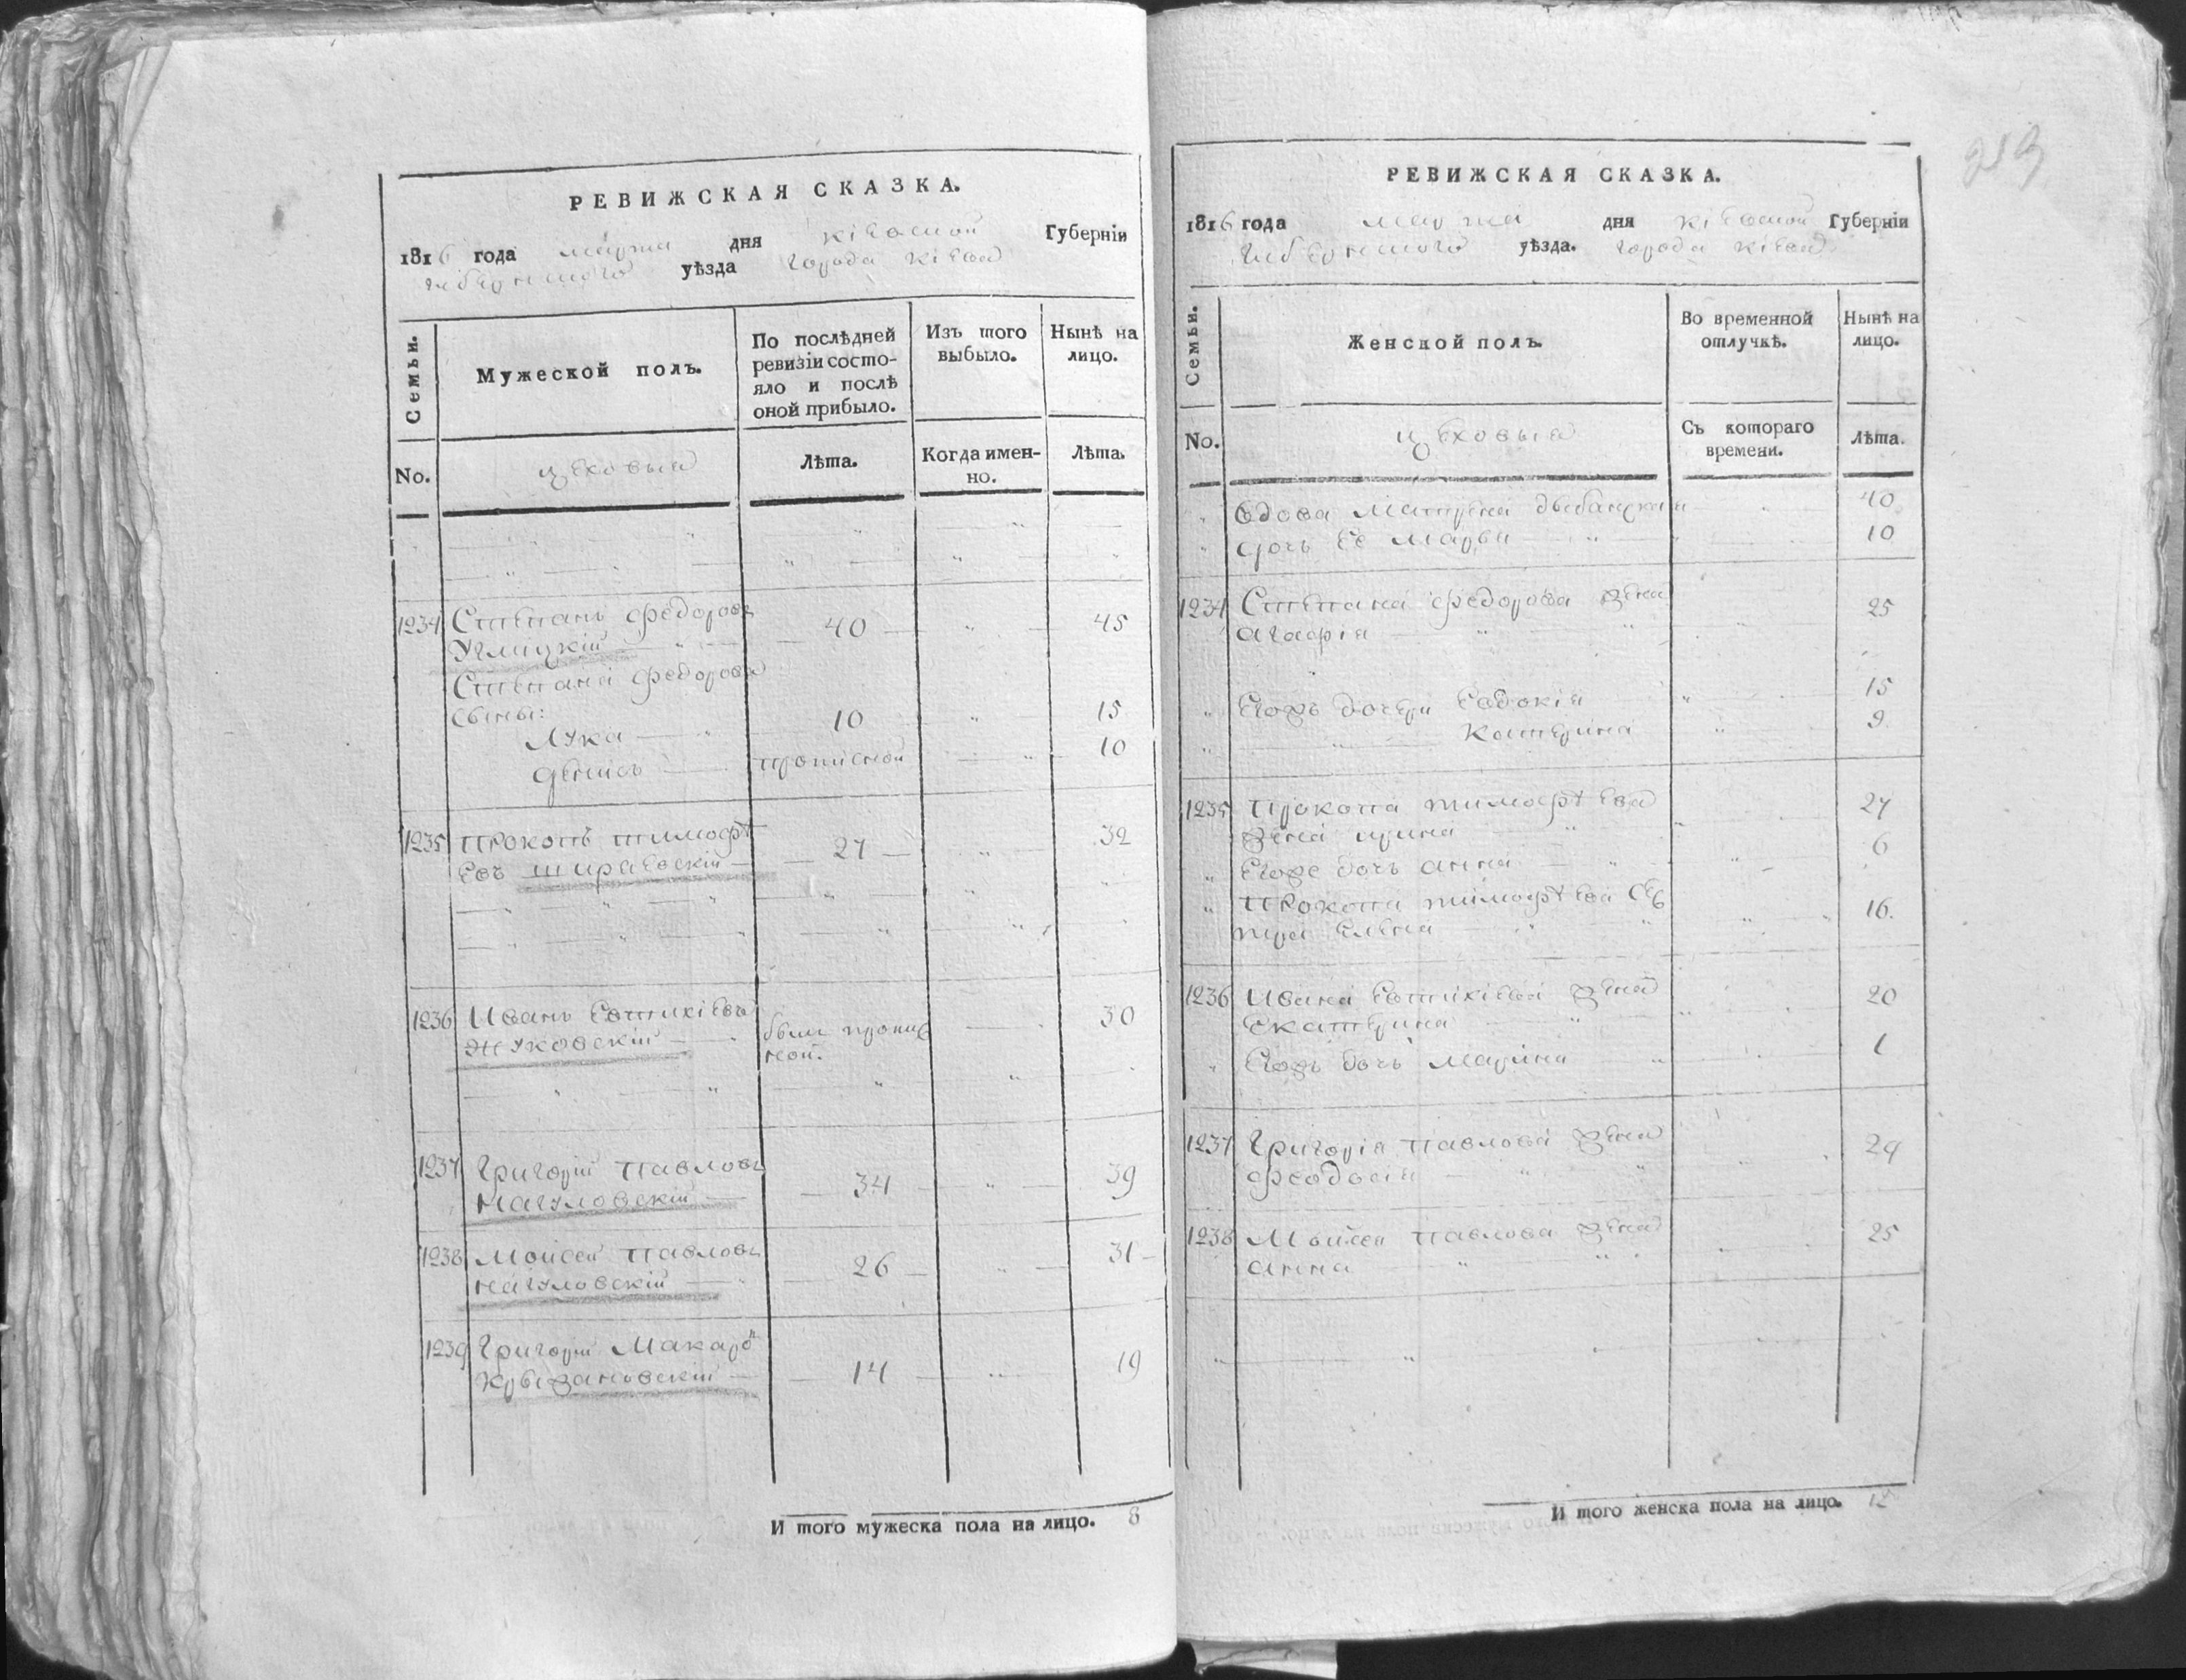 РЕВИЖСКАЯ СКАЗКА.
1816 года марта дня Кіевской Губерніи
Губернского уѣзда города Кіева
Семьи.
Мужеской полъ.
По послѣдней ревизіи состо-
яло и послѣ
оной прибыло.
Изъ того
выбыло.
Нынѣ на
лицо.
No.
цеховыя
Лѣта.
Когда имен-
но.
Лѣта.
1234 Степанъ Федоровъ
Углицкій 40 45
Степана Федорова
сыны:
Лука 10 15
Денисъ прописной 10
1235 Прокопъ Тимофѣ
евъ Шираевскій 27 32
1236 Иванъ Евтихіевъ 30
Жуковскій былъ пропис
ной.
1237 Григорій Павловъ
Нагуловскій 34 39
1238 Мойсей Павловъ
Нагуловскій 26 31
1239 Григорій Макаро
Крыжановскій 14 19
И того мужеска пола на лицо. 8
РЕВИЖСКАЯ СКАЗКА.
1816 года марта дня Кіевской Губерніи
Губернского уѣзда. города Кіева
Семьи.
Женской полъ.
Во временной
отлучкѣ.
Нынѣ на
лицо.
No.
цеховыя
Съ котораго
времени.
Лѣта.
вдова Матрена 40
дочь ее Марья 10
1234 Степана Федорова жена
Агафія 25
Егожъ дочери Евдокія 15
Катерина 9
1235 Прокопа Тимофѣева 27
жена Ирина
Егоже дочь Анна 6
Прокопа Тимофѣева сес
тра Елена 16.
1236 Ивана Евтихіева жена
Екатерина 20
Егожъ дочь Марина 1
1237 Григорія Павлова жена
Феодосія 24
1238 Мойсея Павлова жена
Анна 25
И того женска пола на лицо. 12